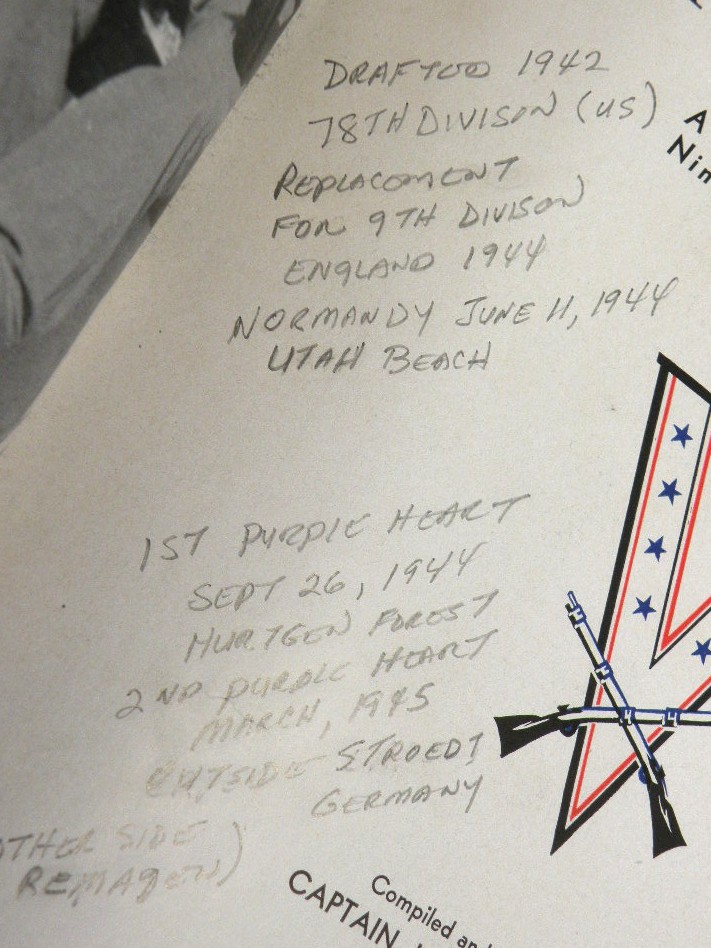 DRAFTED 1942
78TH DIVISON (US)
REPLACEMENT
FOR 9TH DIVISON
ENGLAND 1944
NORMANDY JUNE 11, 1944
UTAH BEACH
1ST PURPLE HEART
SEPT 26, 1944
HURTGEN FOREST
2ND PURPLE HEART
MARCH, 1945
OUTSIDE STROEDT
GERMANY
OTHER SIDE
REMAGEN)
A
Nin
Compiled an
CAPTAIN